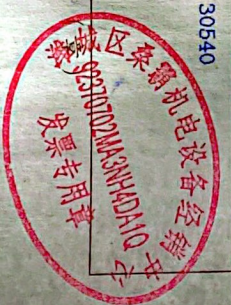 30540
区桑霸机电设备经销中心
92370702MA3NH4DA1Q
发票专用章